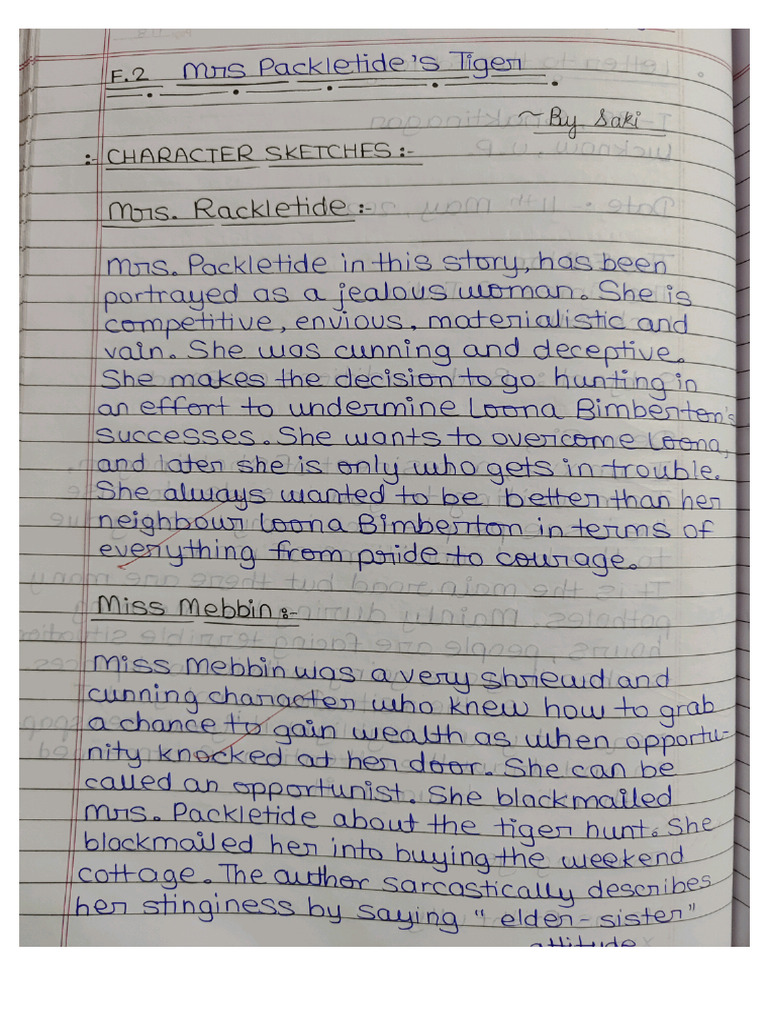 F.2 Mrs Packletide's Tiger
~ By Saki
:- CHARACTER SKETCHES :-
Mrs. Rackletide :-
Mrs. Packletide in this story, has been
portrayed as a jealous woman. She is
competitive, envious, materialistic and
vain. She was cunning and deceptive.
She makes the decision to go hunting in
an effort to undermine Loona Bimberton's
successes. She wants to overcome Loona,
and later she is only who gets in trouble.
She always wanted to be better than her
neighbour Loona Bimberton in terms of
everything from pride to courage.
Miss Mebbin :-
Miss Mebbin was a very shrewd and
cunning character who knew how to grab
a chance to gain wealth as when opportu-
nity knocked at her door. She can be
called an opportunist. She blackmailed
Mrs. Packletide about the tiger hunt. She
blackmailed her into buying the weekend
cottage. The author sarcastically describes
her stinginess by saying " elder-sister"
attitude